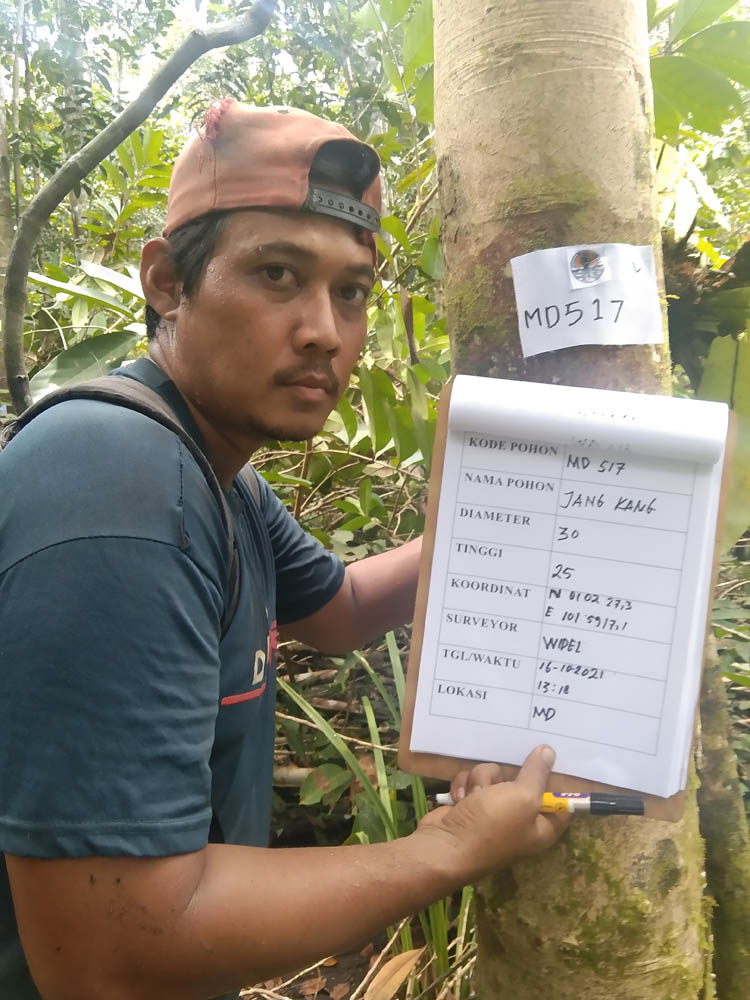 MD517
KODE POHON MD 517
NAMA POHON JANG KANG
DIAMETER 30
TINGGI 25
KOORDINAT N 01 02 27,3
E 101 59 17,1
SURVEYOR WIDEL
TGL/WAKTU 16-10-2021
13:18
LOKASI MD